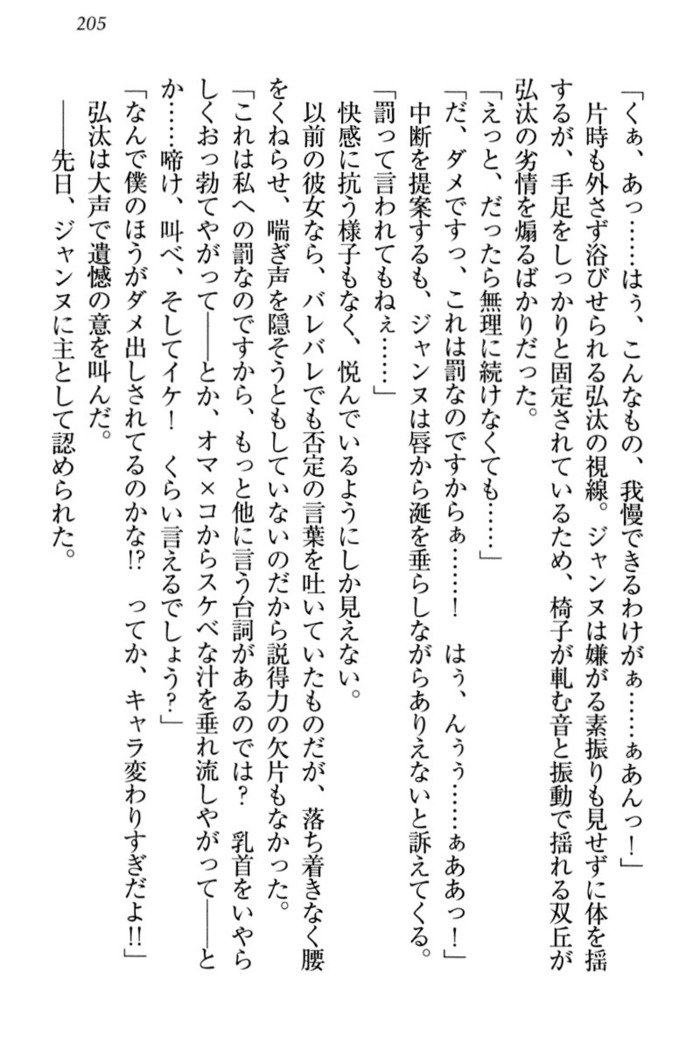 205
「くぁ、あっ……はぅ、こんなもの、我慢できるわけがぁ……ぁあんっ！」
　片時も外さず浴びせられる弘汰の視線。ジャンヌは嫌がる素振りも見せずに体を揺
するが、手足をしっかりと固定されているため、椅子が軋む音と振動で揺れる双丘が
弘汰の劣情を煽るばかりだった。
「えっと、だったら無理に続けなくても……」
「だ、ダメですっ、これは罰なのですからぁ……！　はぅ、んぅぅ……ぁああっ！」
　中断を提案するも、ジャンヌは唇から涎を垂らしながらありえないと訴えてくる。
「罰って言われてもねぇ……」
　快感に抗う様子もなく、悦んでいるようにしか見えない。
　以前の彼女なら、バレバレでも否定の言葉を吐いていたものだが、落ち着きなく腰
をくねらせ、喘ぎ声を隠そうともしていないのだから説得力の欠片もなかった。
「これは私への罰なのですから、もっと他に言う台詞があるのでは？　乳首をいやら
しくおっ勃てやがって――とか、オマ×コからスケベな汁を垂れ流しやがって――と
か……啼け、叫べ、そしてイケ！　くらい言えるでしょう？」
「なんで僕のほうがダメ出しされてるのかな!?　ってか、キャラ変わりすぎだよ!!」
　弘汰は大声で遺憾の意を叫んだ。
　――先日、ジャンヌに主として認められた。